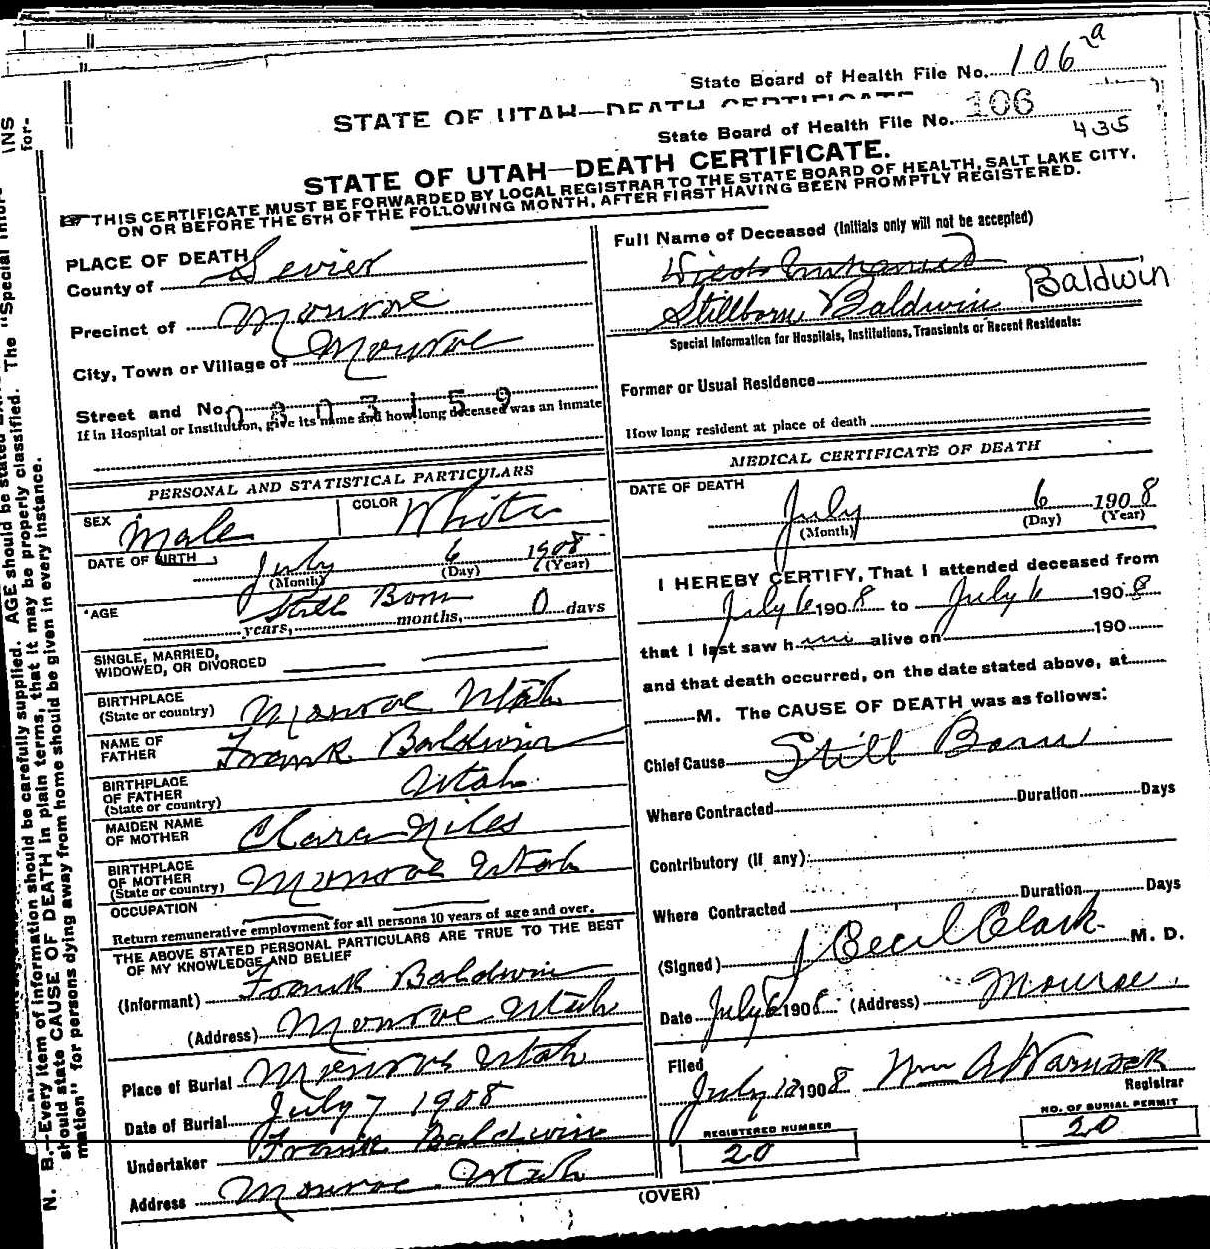 State Board of Health File No. 106 2a
STATE OF UTAH—DEATH CERTIFICATE
State Board of Health File No. 106
435
STATE OF UTAH—DEATH CERTIFICATE.
THIS CERTIFICATE MUST BE FORWARDED BY LOCAL REGISTRAR TO THE STATE BOARD OF HEALTH, SALT LAKE CITY,
ON OR BEFORE THE 5TH OF THE FOLLOWING MONTH, AFTER FIRST HAVING BEEN PROMPTLY REGISTERED.
PLACE OF DEATH
County of Sevier
Precinct of Monroe
City, Town or Village of Monroe
Street and No. 0803159
If in Hospital or Institution, give its name and how long deceased was an inmate
PERSONAL AND STATISTICAL PARTICULARS
SEX Male COLOR White
DATE OF BIRTH July 6 1908
(Month) (Day) (Year)
AGE Still Born 0 days
years, months,
SINGLE, MARRIED,
WIDOWED, OR DIVORCED
BIRTHPLACE
(State or country) Monroe Utah
NAME OF
FATHER Frank Baldwin
BIRTHPLACE
OF FATHER
(State or country) Utah
MAIDEN NAME
OF MOTHER Clara Niles
BIRTHPLACE
OF MOTHER
(State or country) Monroe Utah
OCCUPATION
Return remunerative employment for all persons 10 years of age and over.
THE ABOVE STATED PERSONAL PARTICULARS ARE TRUE TO THE BEST
OF MY KNOWLEDGE AND BELIEF
(Informant) Frank Baldwin
(Address) Monroe Utah
Place of Burial Monroe Utah
Date of Burial July 7 1908
Undertaker Frank Baldwin
Address Monroe Utah
Full Name of Deceased (Initials only will not be accepted)
Stillborn Baldwin Baldwin
Special Information for Hospitals, Institutions, Transients or Recent Residents:
Former or Usual Residence
How long resident at place of death
MEDICAL CERTIFICATE OF DEATH
DATE OF DEATH
July 6 1908
(Month) (Day) (Year)
I HEREBY CERTIFY, That I attended deceased from
July 6 1908 to July 6 1908
that I last saw him alive on 190
and that death occurred, on the date stated above, at
M. The CAUSE OF DEATH was as follows:
Chief Cause Still Born
Where Contracted Duration Days
Contributory (if any):
Where Contracted Duration Days
(Signed) J Cecil Clark M. D.
Date July 6 1908 (Address) Monroe
Filed
July 1908 Wm A Warnock
Registrar
REGISTERED NUMBER
20
NO. OF BURIAL PERMIT
20
(OVER)
N. B.—Every item of information should be carefully supplied. AGE should be stated
should state CAUSE OF DEATH in plain terms, that it may be properly classified. The "Special Infor-
mation" for persons dying away from home should be given in every instance.